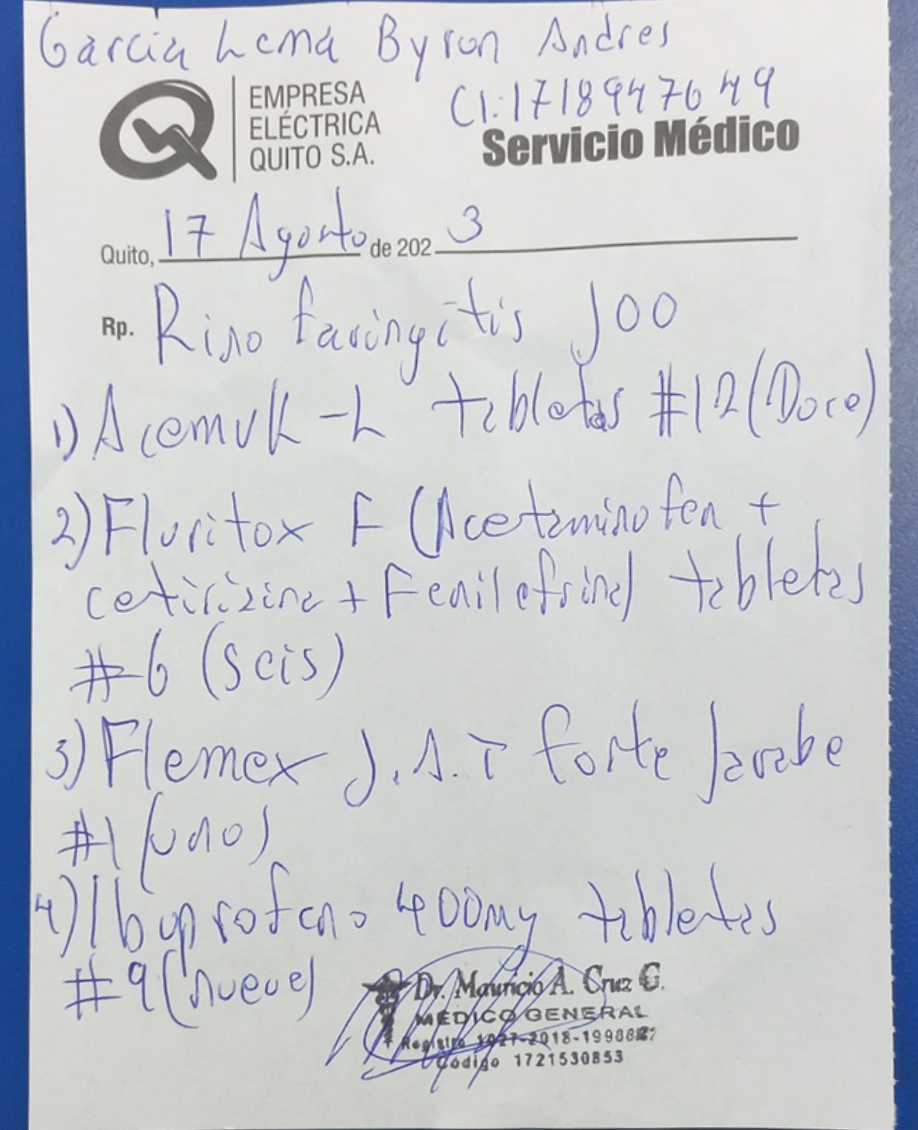 Garcia Lema Byron Andres
CI: 1718947649
EMPRESA
ELÉCTRICA
QUITO S.A.
Servicio Médico
Quito, 17 Agosto de 202 3
Rp. Rino faringitis J00
1) Acemuk-L tabletas #12 (Doce)
2) Fluritox F (Acetaminofen +
cetirizina + Fenilefrina) tabletas
#6 (seis)
3) Flemex J.A.T forte Jarabe
#1 (uno)
4) Ibuprofeno 400mg tabletas
#9 (nueve)
Dr. Mauricio A. Cruz C.
MÉDICO GENERAL
Registro
Código 1721530853